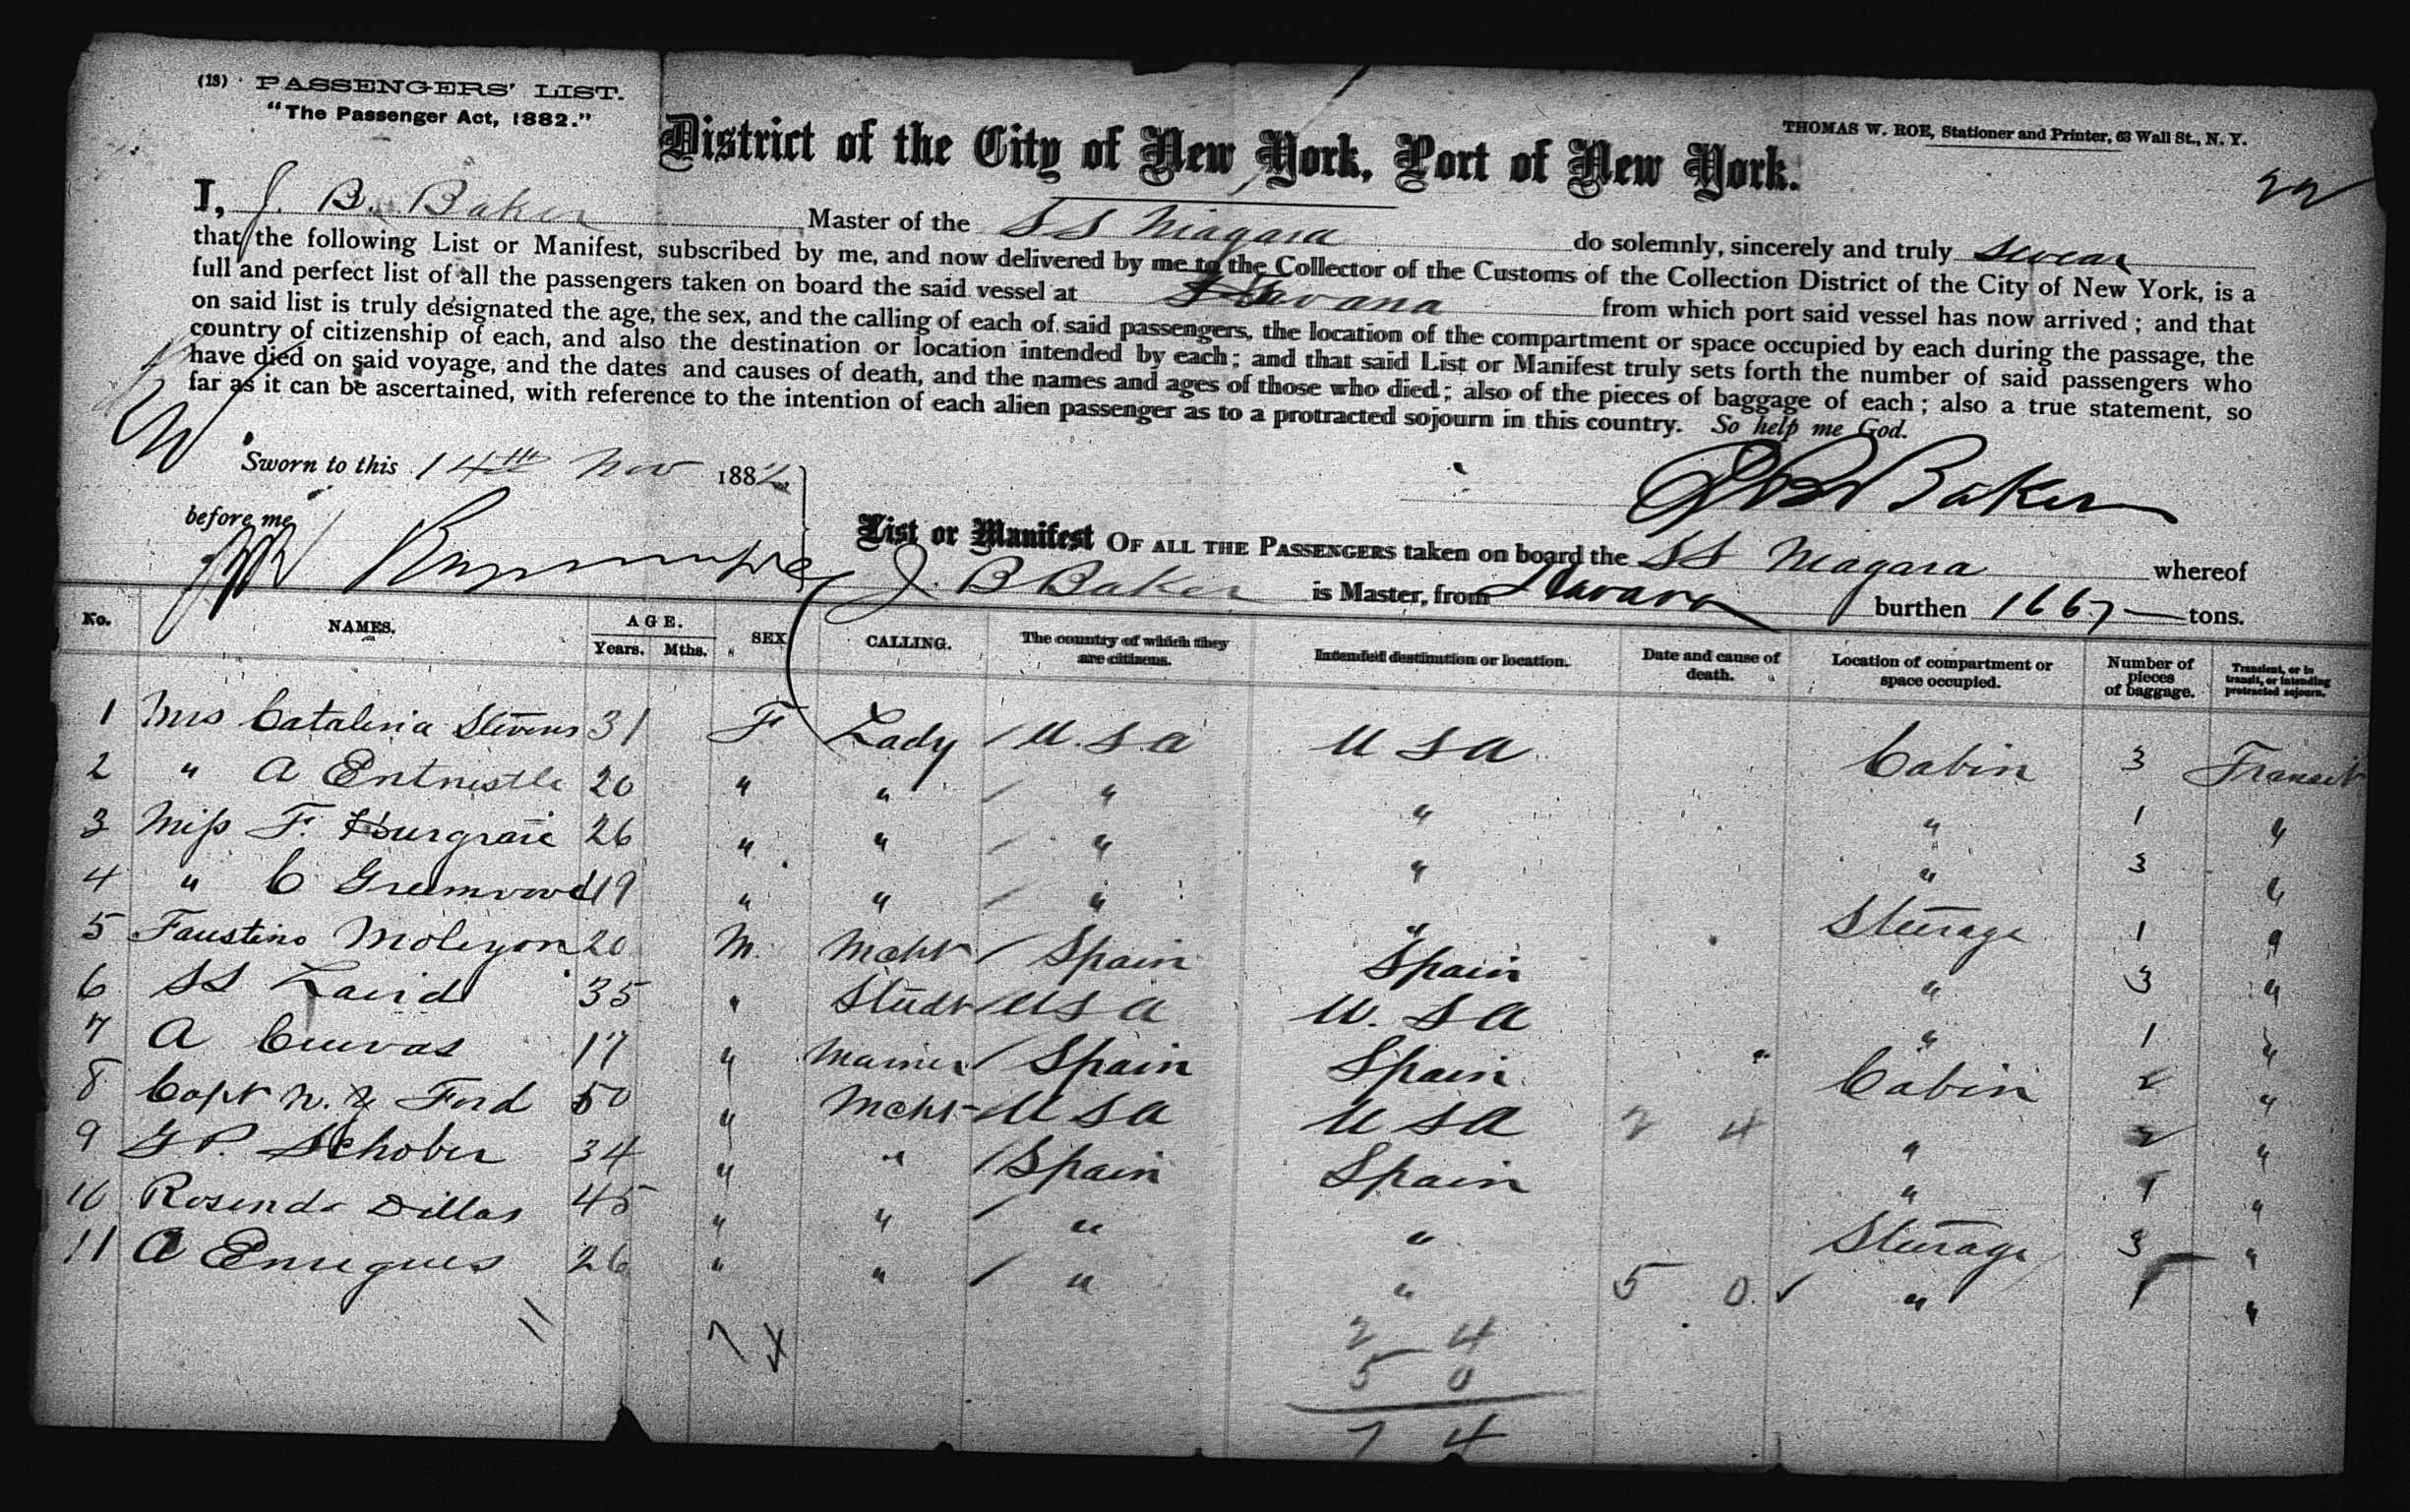 (13) PASSENGERS' LIST.
"The Passenger Act, 1882."
THOMAS W. ROE, Stationer and Printer, 63 Wall St., N. Y.
District of the City of New York, Port of New York.
22
I, J. B. Baker Master of the SS Niagara do solemnly, sincerely and truly swear
that the following List or Manifest, subscribed by me, and now delivered by me to the Collector of the Customs of the Collection District of the City of New York, is a
full and perfect list of all the passengers taken on board the said vessel at Havana from which port said vessel has now arrived; and that
on said list is truly designated the age, the sex, and the calling of each of said passengers, the location of the compartment or space occupied by each during the passage, the
country of citizenship of each, and also the destination or location intended by each; and that said List or Manifest truly sets forth the number of said passengers who
have died on said voyage, and the dates and causes of death, and the names and ages of those who died; also of the pieces of baggage of each; also a true statement, so
far as it can be ascertained, with reference to the intention of each alien passenger as to a protracted sojourn in this country. So help me God.
Sworn to this 14th Nov 188
J B Baker
before me
List or Manifest OF ALL THE PASSENGERS taken on board the SS Niagara whereof
J. B Baker is Master, from Havana burthen 1667 tons.
No. NAMES. AGE. Years. Mths. SEX CALLING. The country of which they are citizens. Intended destination or location. Date and cause of death. Location of compartment or space occupied. Number of pieces of baggage. Transient, or in transit, or intending protracted sojourn.
1 Mrs Catalina Stevens 31 F Lady U.S.A U S A Cabin 3 Transit
2 " A Entwistle 20 " " " " " 1 "
3 Miss F. 26 " " " " " 3 "
4 " C Greenwood 19 " " " " Steerage 1 "
5 Faustino 20 M. Mcht Spain Spain " 3 "
6 SS Laird 35 " Studt U S A U. S A " 1 "
7 A Cuevas 17 " Mariner Spain Spain Cabin 2 "
8 Capt N. Ford 50 " Mcht U S A U S A 2 4 " 2 "
9 G P. Schober 34 " " Spain Spain " 1 "
10 Rosendo Dillas 45 " " " " Steerage 3 "
11 A 26 " " " " 5 0 " 1 "
11
7 4
2 4
5 0
7 4